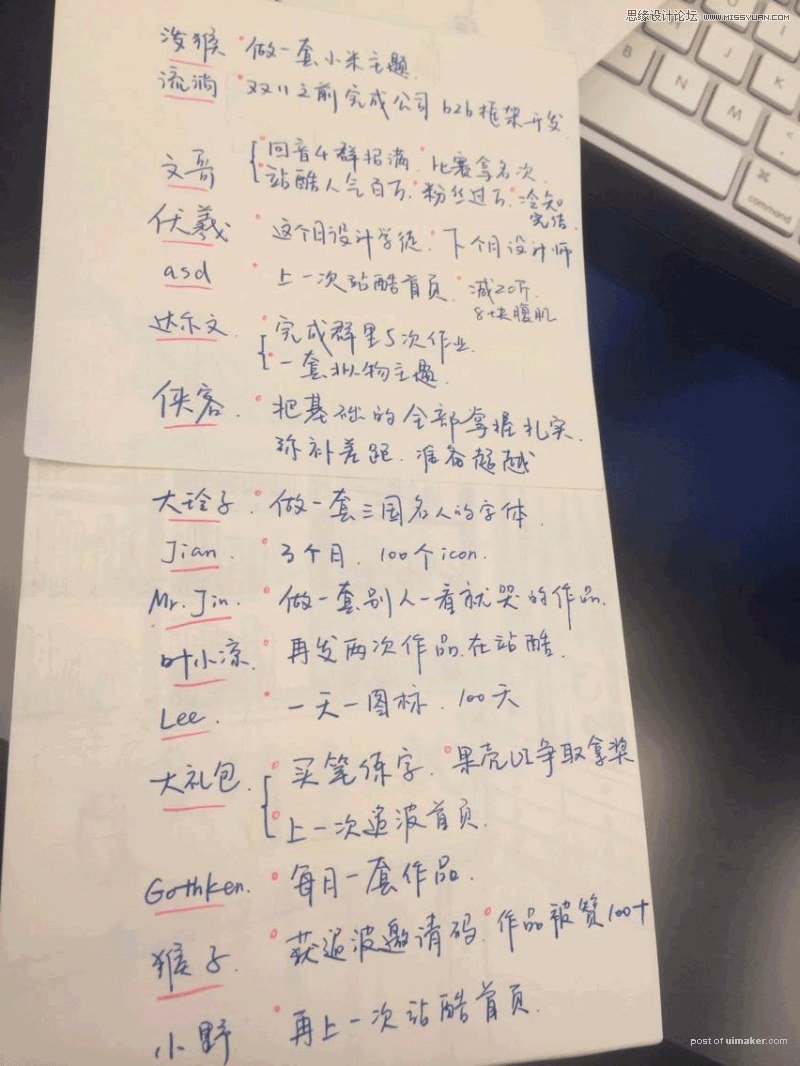 思缘设计论坛 WWW.MISSYUAN.COM
泼猴 做一套小米主题.
流淌 双11之前完成公司 b2b框架开发
文哥 回音4群招满. 比赛拿名次.
站酷人气百万. 粉丝过万. 冷知
完结.
伏羲 这个月设计学徒. 下个月设计师
asd 上一次站酷首页. 减20斤.
8块腹肌
达尔文 完成群里5次作业.
一套拟物主题.
侠客. 把基础的全部掌握扎实.
弥补差距. 准备超越
大琻子. 做一套三国名人的字体.
Jian. 3个月. 100个icon.
Mr.Jin. 做一套别人一看就哭的作品.
叶小凉. 再发两次作品在站酷.
Lee. 一天一图标. 100天
大礼包. 买笔练字. 果壳UI争取拿奖
上一次追波首页.
Gothken. 每月一套作品.
猴子. 获追波邀请码. 作品被赞100+
小野 再上一次站酷首页.
B
N
M
⌘
command
post of uimaker.com